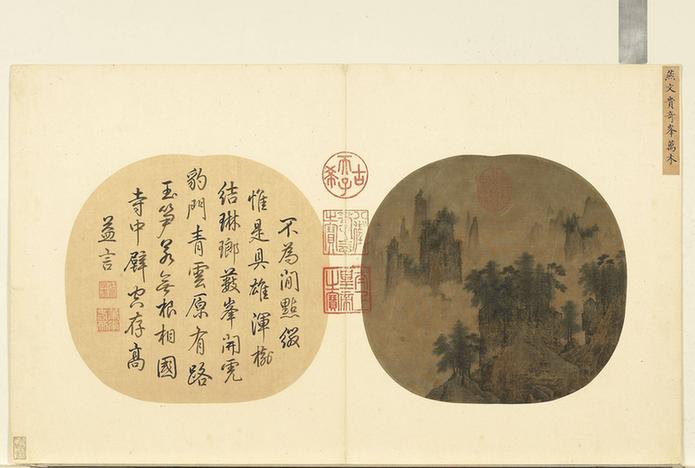 燕文貴奇峯萬木
不為閒點綴
惟是具雄渾樹
結琳瑯藪峯開虎
豹門青雲原有路
玉笋若無根相國
寺中壁空存高
益言
古希天子